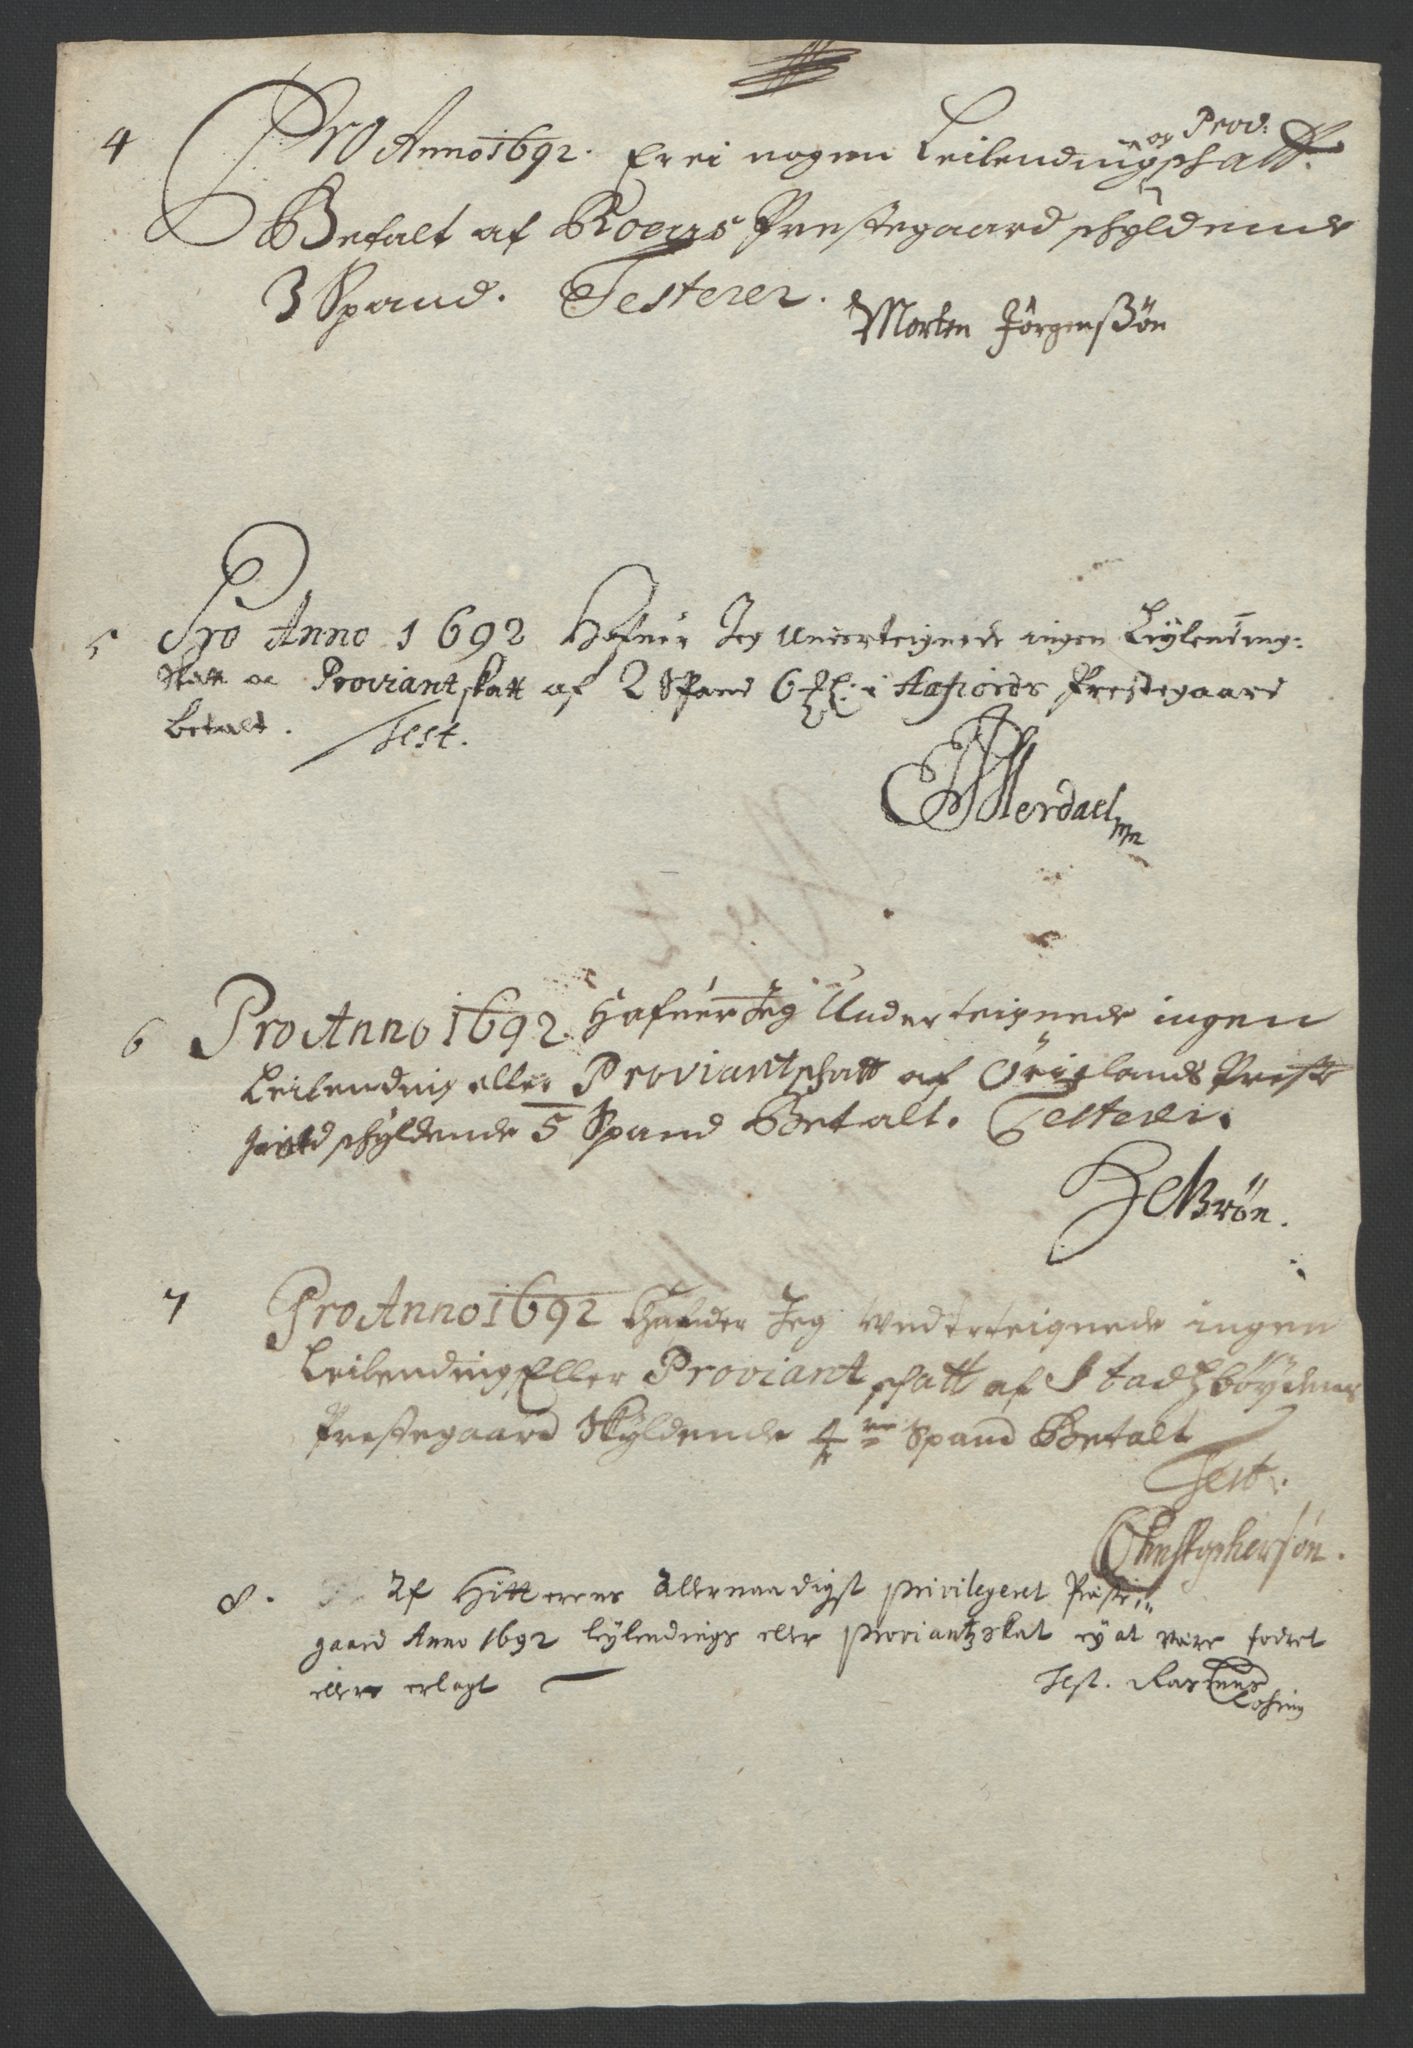 4 Pro Anno 1692. Er ei nogen Leilending og Prov: schatt.
Betalt af Roeus Prestegaard schyldende
3 Spand. Testerer.
Morten Jörgensßön
5 Pro Anno 1692 Hafuer Jeg Underteignede ingen Leylending:
skatt oc Proviant skatt af 2 Spand 6 ℔: i Aafiords Prestegaard
betalt. Test.
Werdael
mp
6 Pro Anno 1692 Hafuer Jeg Underteignede ingen
Leilending eller Proviant schatt af Öriglands Preste
schyldende 5 Spand Betalt. Testerer.
Brön.
7 Pro Anno 1692 Hafuer Jeg Underteignede ingen
Leilending Eller Proviant schatt af Stadtzböydens
Prestegaard Skyldende 4re Spand Betalt
Test.
Christophersön.
8. Af Hitterens Allernaadigst privilegeret Preste
gaard Anno 1692 leylendings eller proviantz skat ey at være fodret
eller erlagt Test. Rasmus